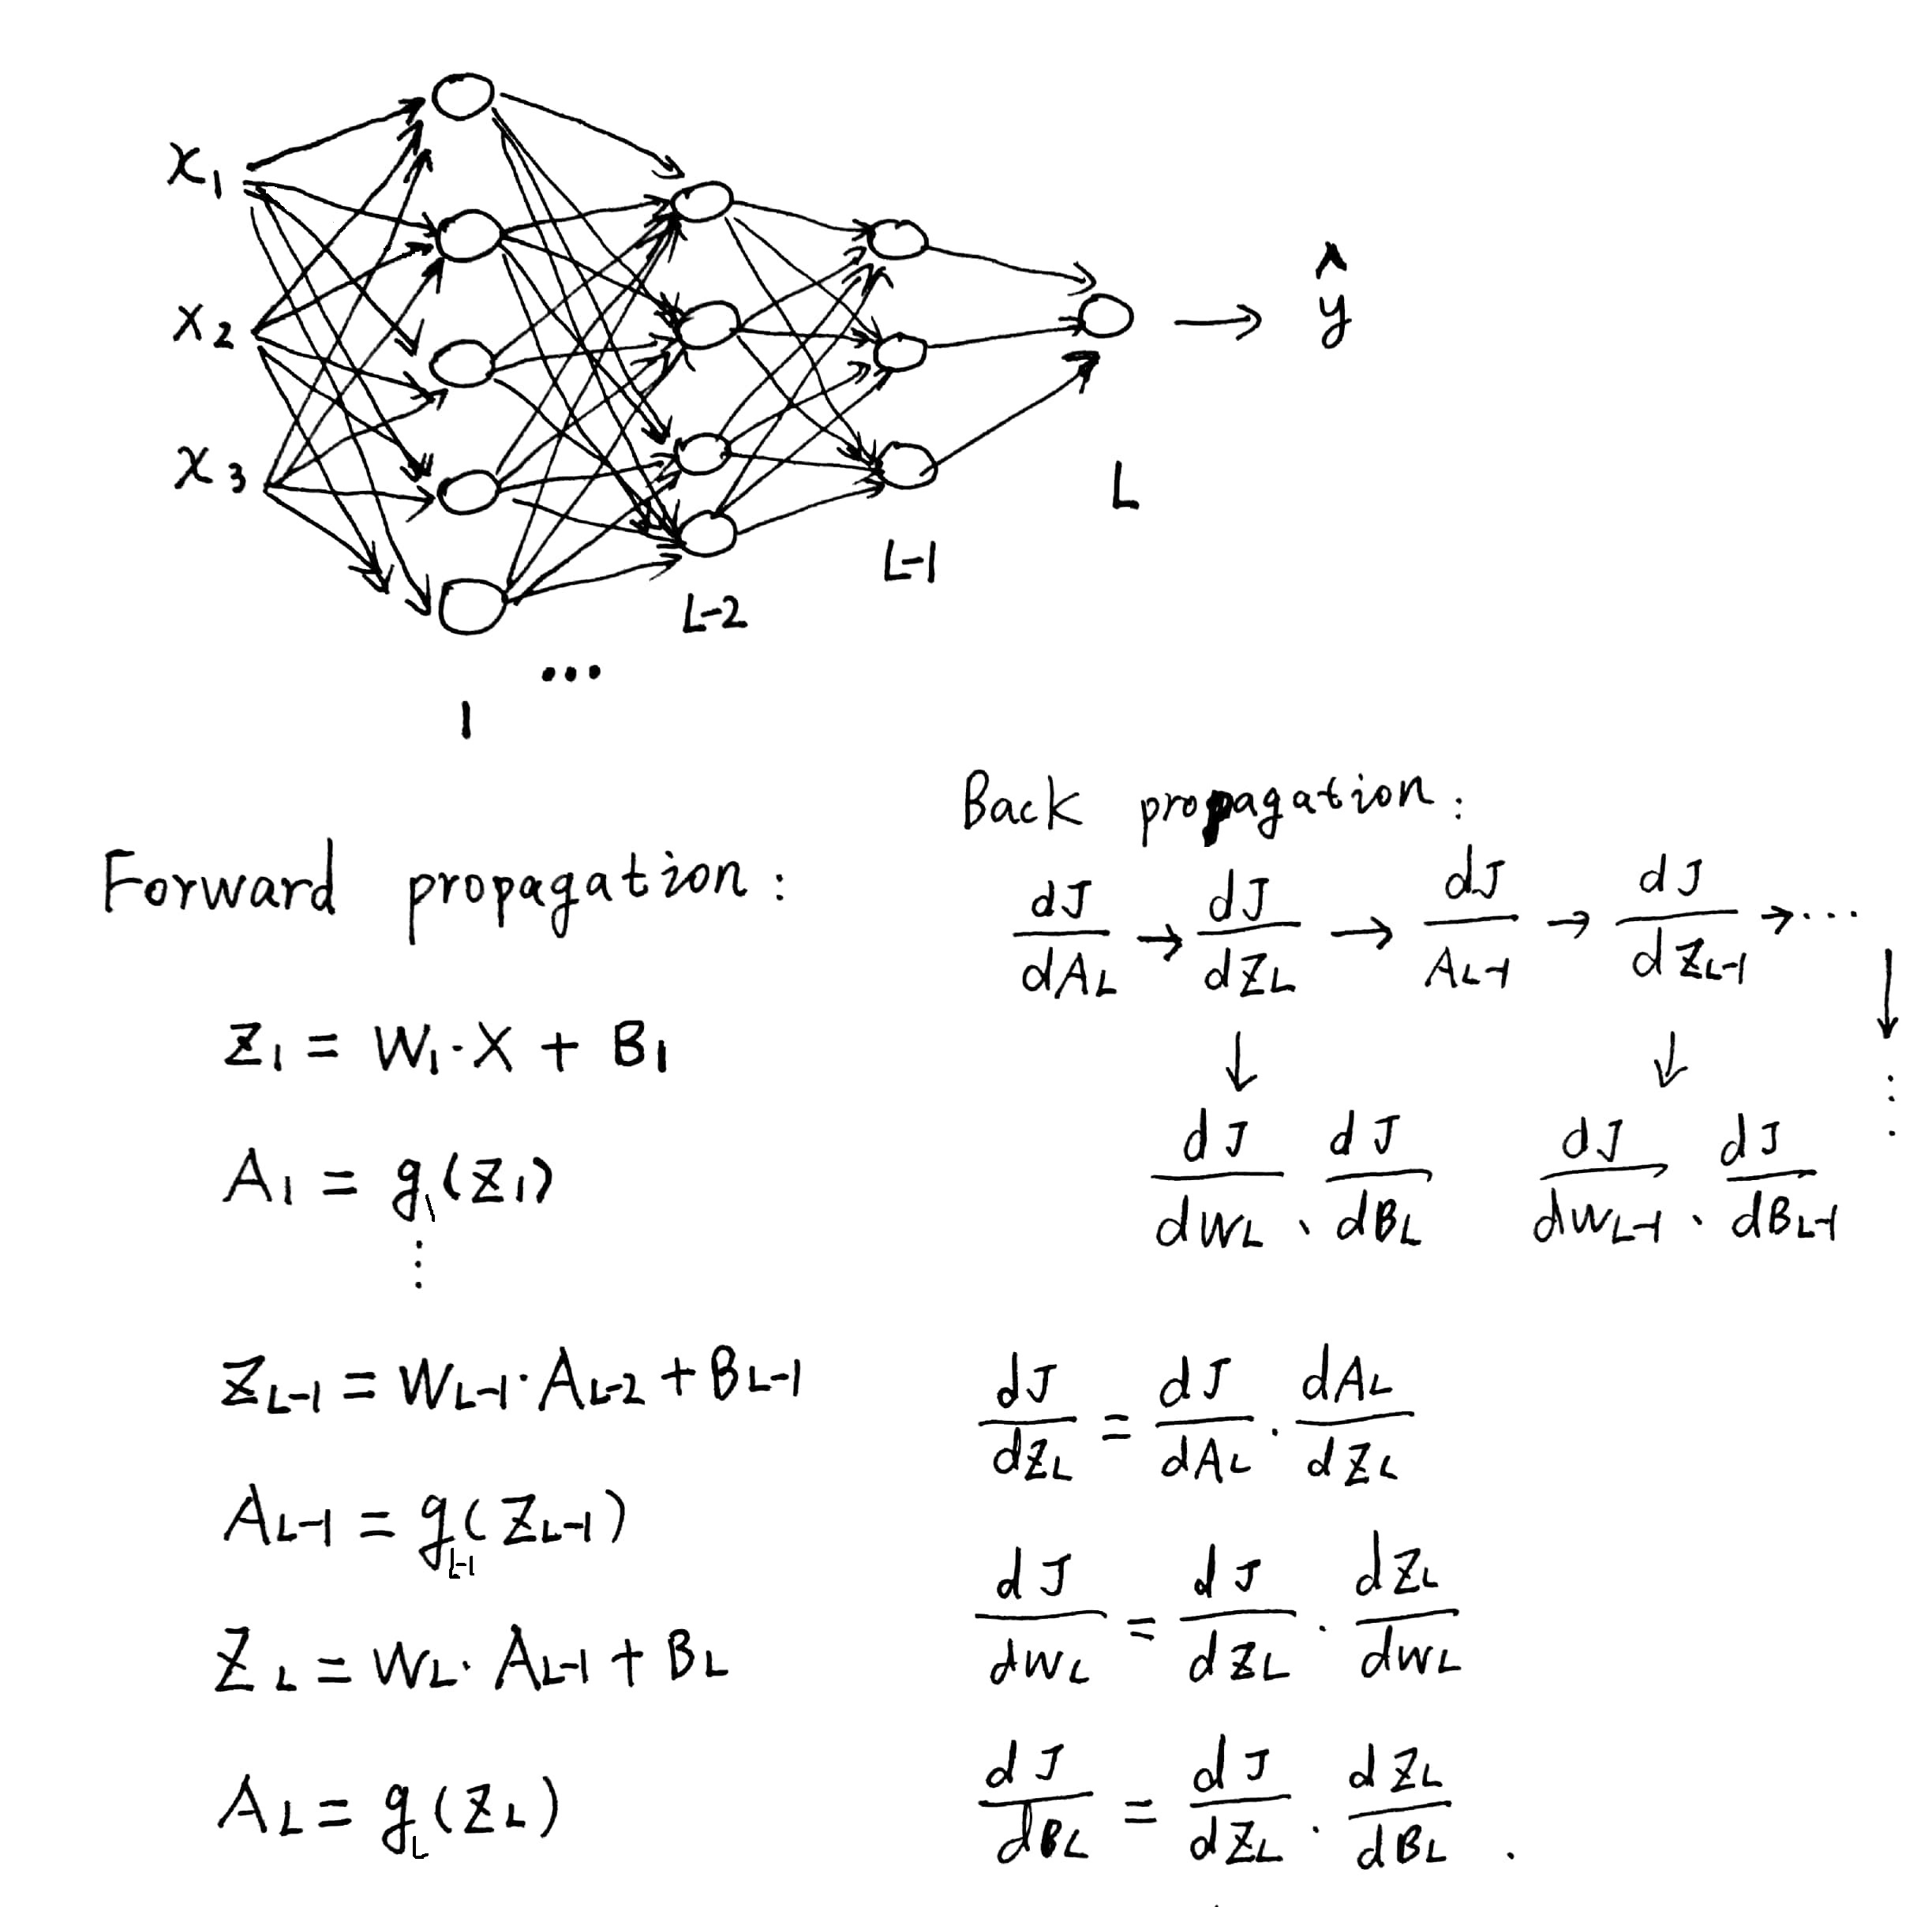 x1
x2
x3
ŷ
L
L-1
L-2
...
1
Forward propagation:
Z1 = W1·X + B1
A1 = g1(Z1)
⋮
ZL-1 = WL-1·AL-2 + BL-1
AL-1 = gL-1(ZL-1)
ZL = WL·AL-1 + BL
AL = gL(ZL)
Back propagation:
dJ/dAL → dJ/dZL → dJ/AL-1 → dJ/dZL-1 → ...
↓ ↓ ↓
dJ/dWL、dJ/dBL dJ/dWL-1、dJ/dBL-1 ⋮
dJ/dZL = dJ/dAL · dAL/dZL
dJ/dWL = dJ/dZL · dZL/dWL
dJ/dBL = dJ/dZL · dZL/dBL .